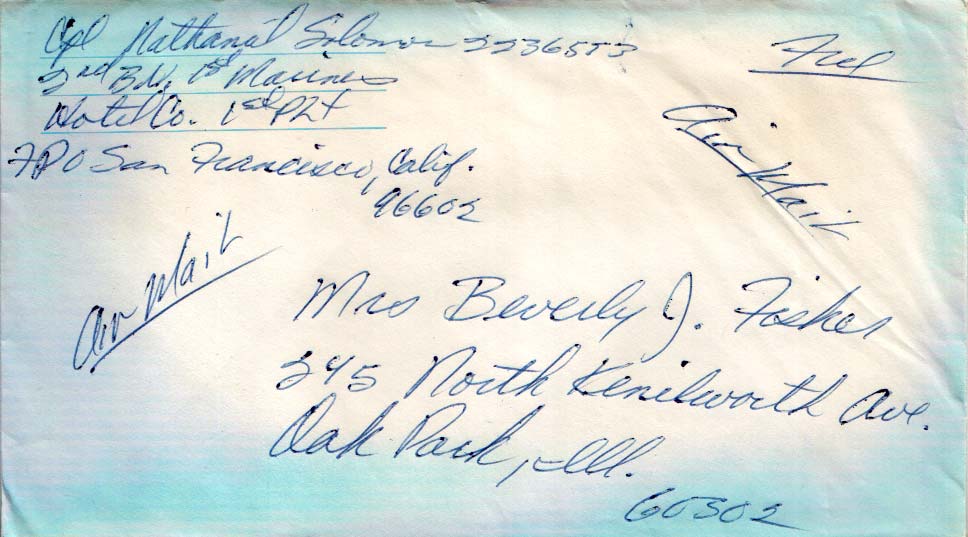 Cpl Nathanal Solomon 2236553
Free
2nd Bn, 1st Marines
Hotel Co. 1st Plt
FPO San Francisco, Calif.
96602
Air Mail
Air Mail
Mrs Beverly J. Fisher
345 North Kenilworth Ave.
Oak Park, Ill.
60302